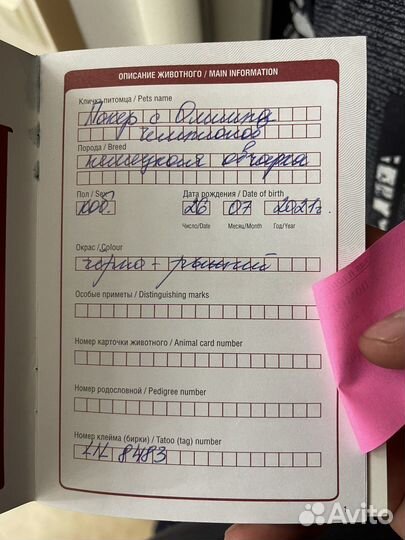 ОПИСАНИЕ ЖИВОТНОГО / MAIN INFORMATION
Кличка питомца / Pets name
с Олимпа
чемпионов
Порода / Breed
немецкая овчарка
Пол / Sex
коб.
Дата рождения / Date of birth
26 07 2021г.
Число/Date Месяц/Month Год/Year
Окрас / Colour
чёрно-рыжий
Особые приметы / Distinguishing marks
Номер карточки животного / Animal card number
Номер родословной / Pedigree number
Номер клейма (бирки) / Tatoo (tag) number
LIL 8483
Avito